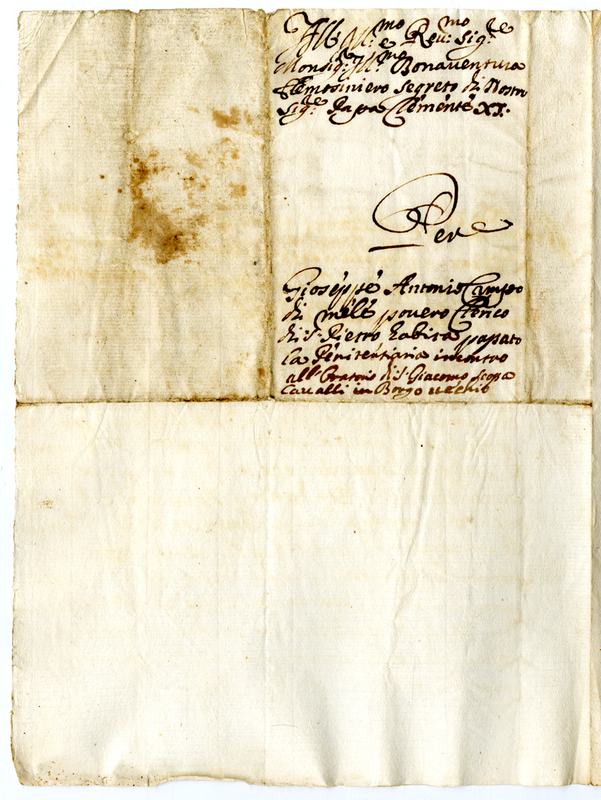 Ill.mo e Reu:mo Sig.re
Monsig.r Ill.mo Bonauentura
Elemosiniero segreto di Nostro
Sig.re Papa Clemente XI.
Per
Gioseppe Antonio Campo
di mele pouero Clerico
di S: Pietro habita passato
la Penitentiaria incontro
all'Oratorio di S: Giacomo scopa
Caualli in Borgo uechio